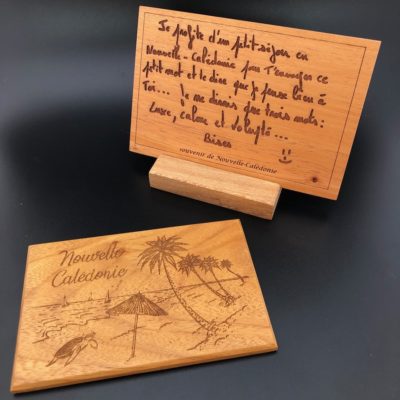 Je profite d'un petit séjour en
Nouvelle-Calédonie pour t'envoyer ce
petit mot et te dire que je pense bien à
Toi... Je me disais que trois mots :
Luxe, Calme et Volupté...
Bises
souvenir de Nouvelle-Calédonie
Nouvelle
Calédonie